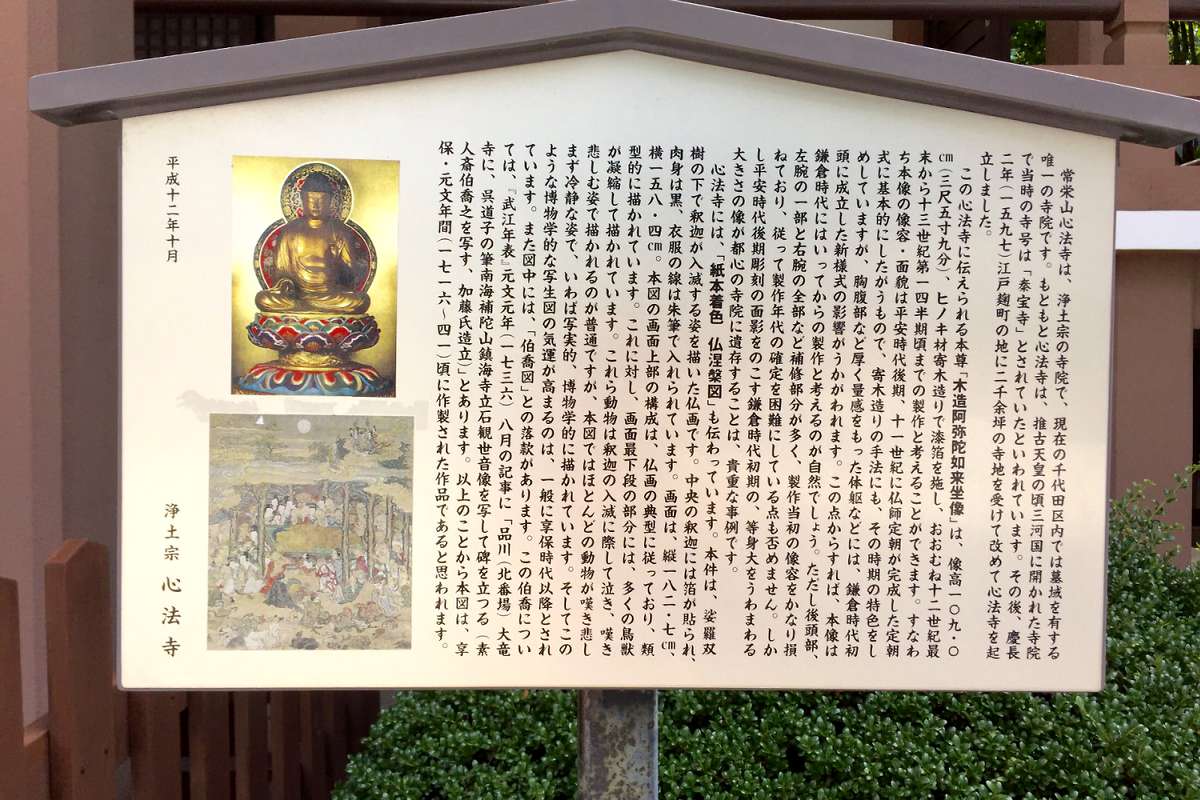 常栄山心法寺は、浄土宗の寺院で、現在の千代田区内では墓域を有する
唯一の寺院です。もともと心法寺は、推古天皇の頃三河国に開かれた寺院
で当時の寺号は「秦宝寺」とされていたといわれています。その後、慶長
二年（一五九七）江戸麹町の地に二千余坪の寺地を受けて改めて心法寺を起
立しました。
この心法寺に伝えられる本尊「木造阿弥陀如来坐像」は、像高一〇九・〇
cm（三尺五寸九分）、ヒノキ材寄木造りで漆箔を施し、おおむね十二世紀最
末から十三世紀第一四半期頃までの製作と考えることができます。すなわ
ち本像の像容・面貌は平安時代後期、十一世紀に仏師定朝が完成した定朝
式に基本的にしたがうもので、寄木造りの手法にも、その時期の特色をし
めしていますが、胸腹部など厚く量感をもった体躯などには、鎌倉時代初
頭に成立した新様式の影響がうかがわれます。この点からすれば、本像は
鎌倉時代にはいってからの製作と考えるのが自然でしょう。ただし後頭部、
左腕の一部と右腕の全部など補修部分が多く、製作当初の像容をかなり損
ねており、従って製作年代の確定を困難にしている点も否めません。しか
し平安時代後期彫刻の面影をのこす鎌倉時代初期の、等身大をうわまわる
大きさの像が都心の寺院に遺存することは、貴重な事例です。
心法寺には、「紙本着色 仏涅槃図」も伝わっています。本件は、娑羅双
樹の下で釈迦が入滅する姿を描いた仏画です。中央の釈迦には箔が貼られ、
肉身は黒、衣服の線は朱筆で入れられています。画面は、縦一八二・七cm、
横一五八・四cm。本図の画面上部の構成は、仏画の典型に従っており、類
型的に描かれています。これに対し、画面最下段の部分には、多くの鳥獣
が凝縮して描かれています。これら動物は釈迦の入滅に際して泣き、嘆き
悲しむ姿で描かれるのが普通ですが、本図ではほとんどの動物が嘆き悲し
まず冷静な姿で、いわば写実的、博物学的に描かれています。そしてこの
ような博物学的な写生図の気運が高まるのは、一般に享保時代以降とされ
ています。また図中には、「伯喬図」との落款があります。この伯喬につい
ては、『武江年表』元文元年（一七三六）八月の記事に「品川（北番場）大竜
寺に、呉道子の筆南海補陀山鎮海寺立石観世音像を写して碑を立つる（素
人斎伯喬之を写す、加藤氏造立）」とあります。以上のことから本図は、享
保・元文年間（一七一六～四一）頃に作製された作品であると思われます。
平成十二年十月
浄土宗 心法寺